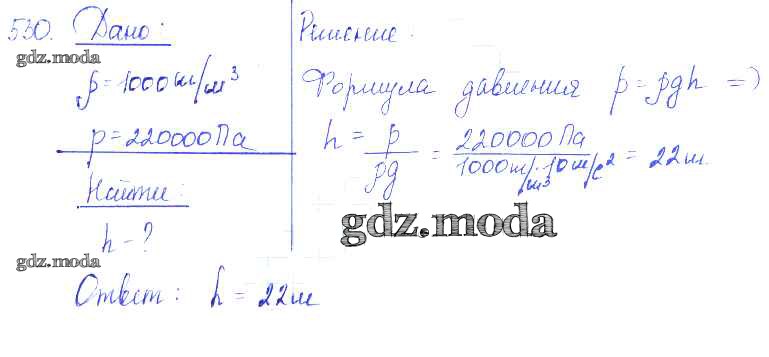 530. Дано:
gdz.moda
ρ = 1000 кг/м³
p = 220000 Па
Найти:
h - ?
gdz.moda
Решение:
Формула давления p = ρgh =>
h = p/ρg = 220000 Па/1000 кг/м³ · 10 м/с² = 22 м.
gdz.moda
Ответ: h = 22 м